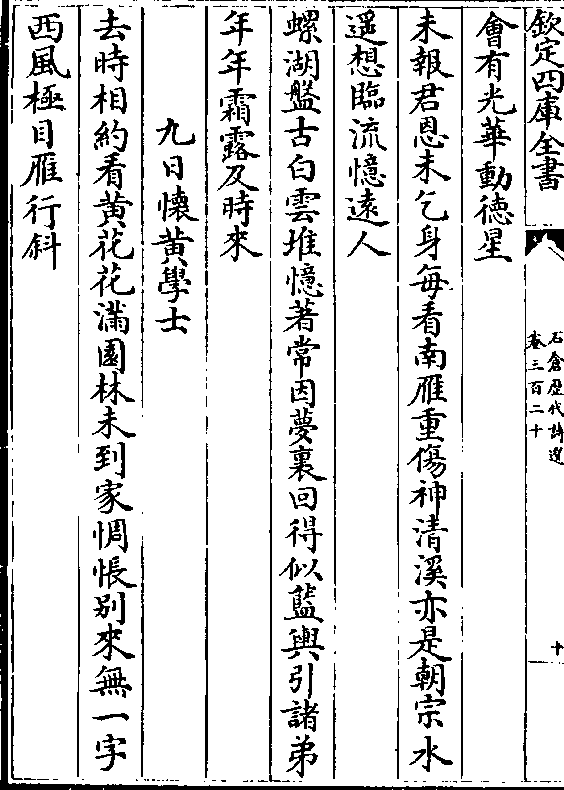 欽定四庫全書
石倉歷代詩選
卷三百二十
十
會有光華動德星
未報君恩未乞身每看南雁重傷神清溪亦是朝宗水
遥想臨流憶遠人
螺湖盤古白雲堆憶著常因夢裏回得似藍輿引諸弟
年年霜露及時來
九日懷黄學士
去時相約看黄花花滿園林未到家惆悵别來無一字
西風極目雁行斜